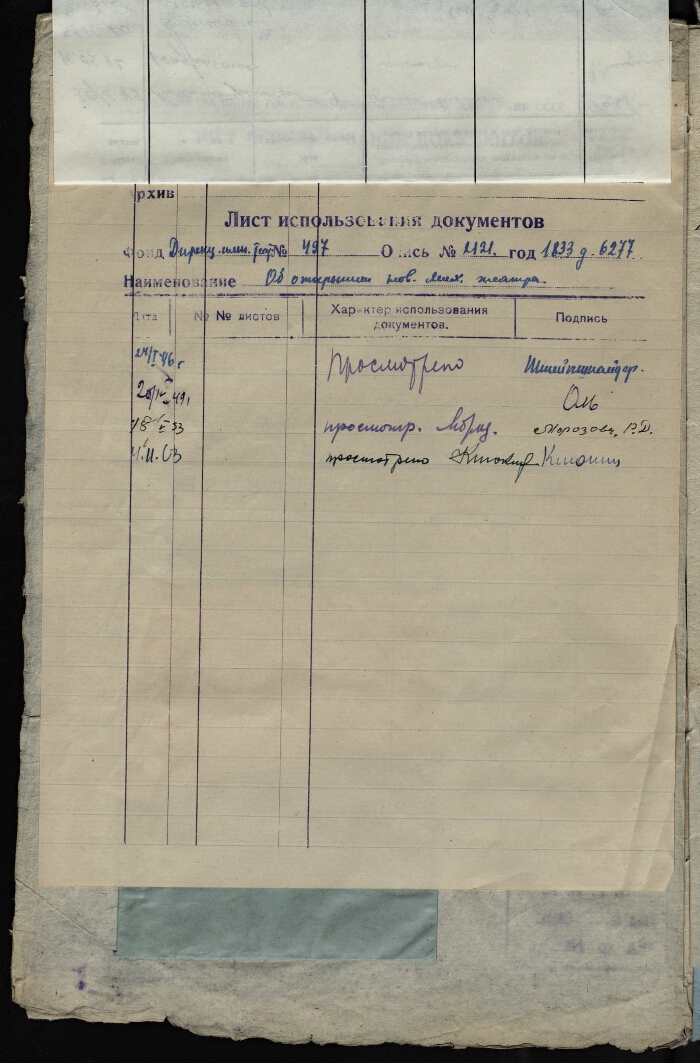 рхив
Лист использования документов
Фонд Дирекц. имп. теат. № 497 Опись № 2121. год 1833 д. 6277
Наименование Об открытии нов. Мих. театра.
Дата № № листов Характер использования документов. Подпись
24/I 46 г Просмотрено
49 г. Оль
18/ 53 просмотр. Мороз. Морозова, В.Д.
просмотрено